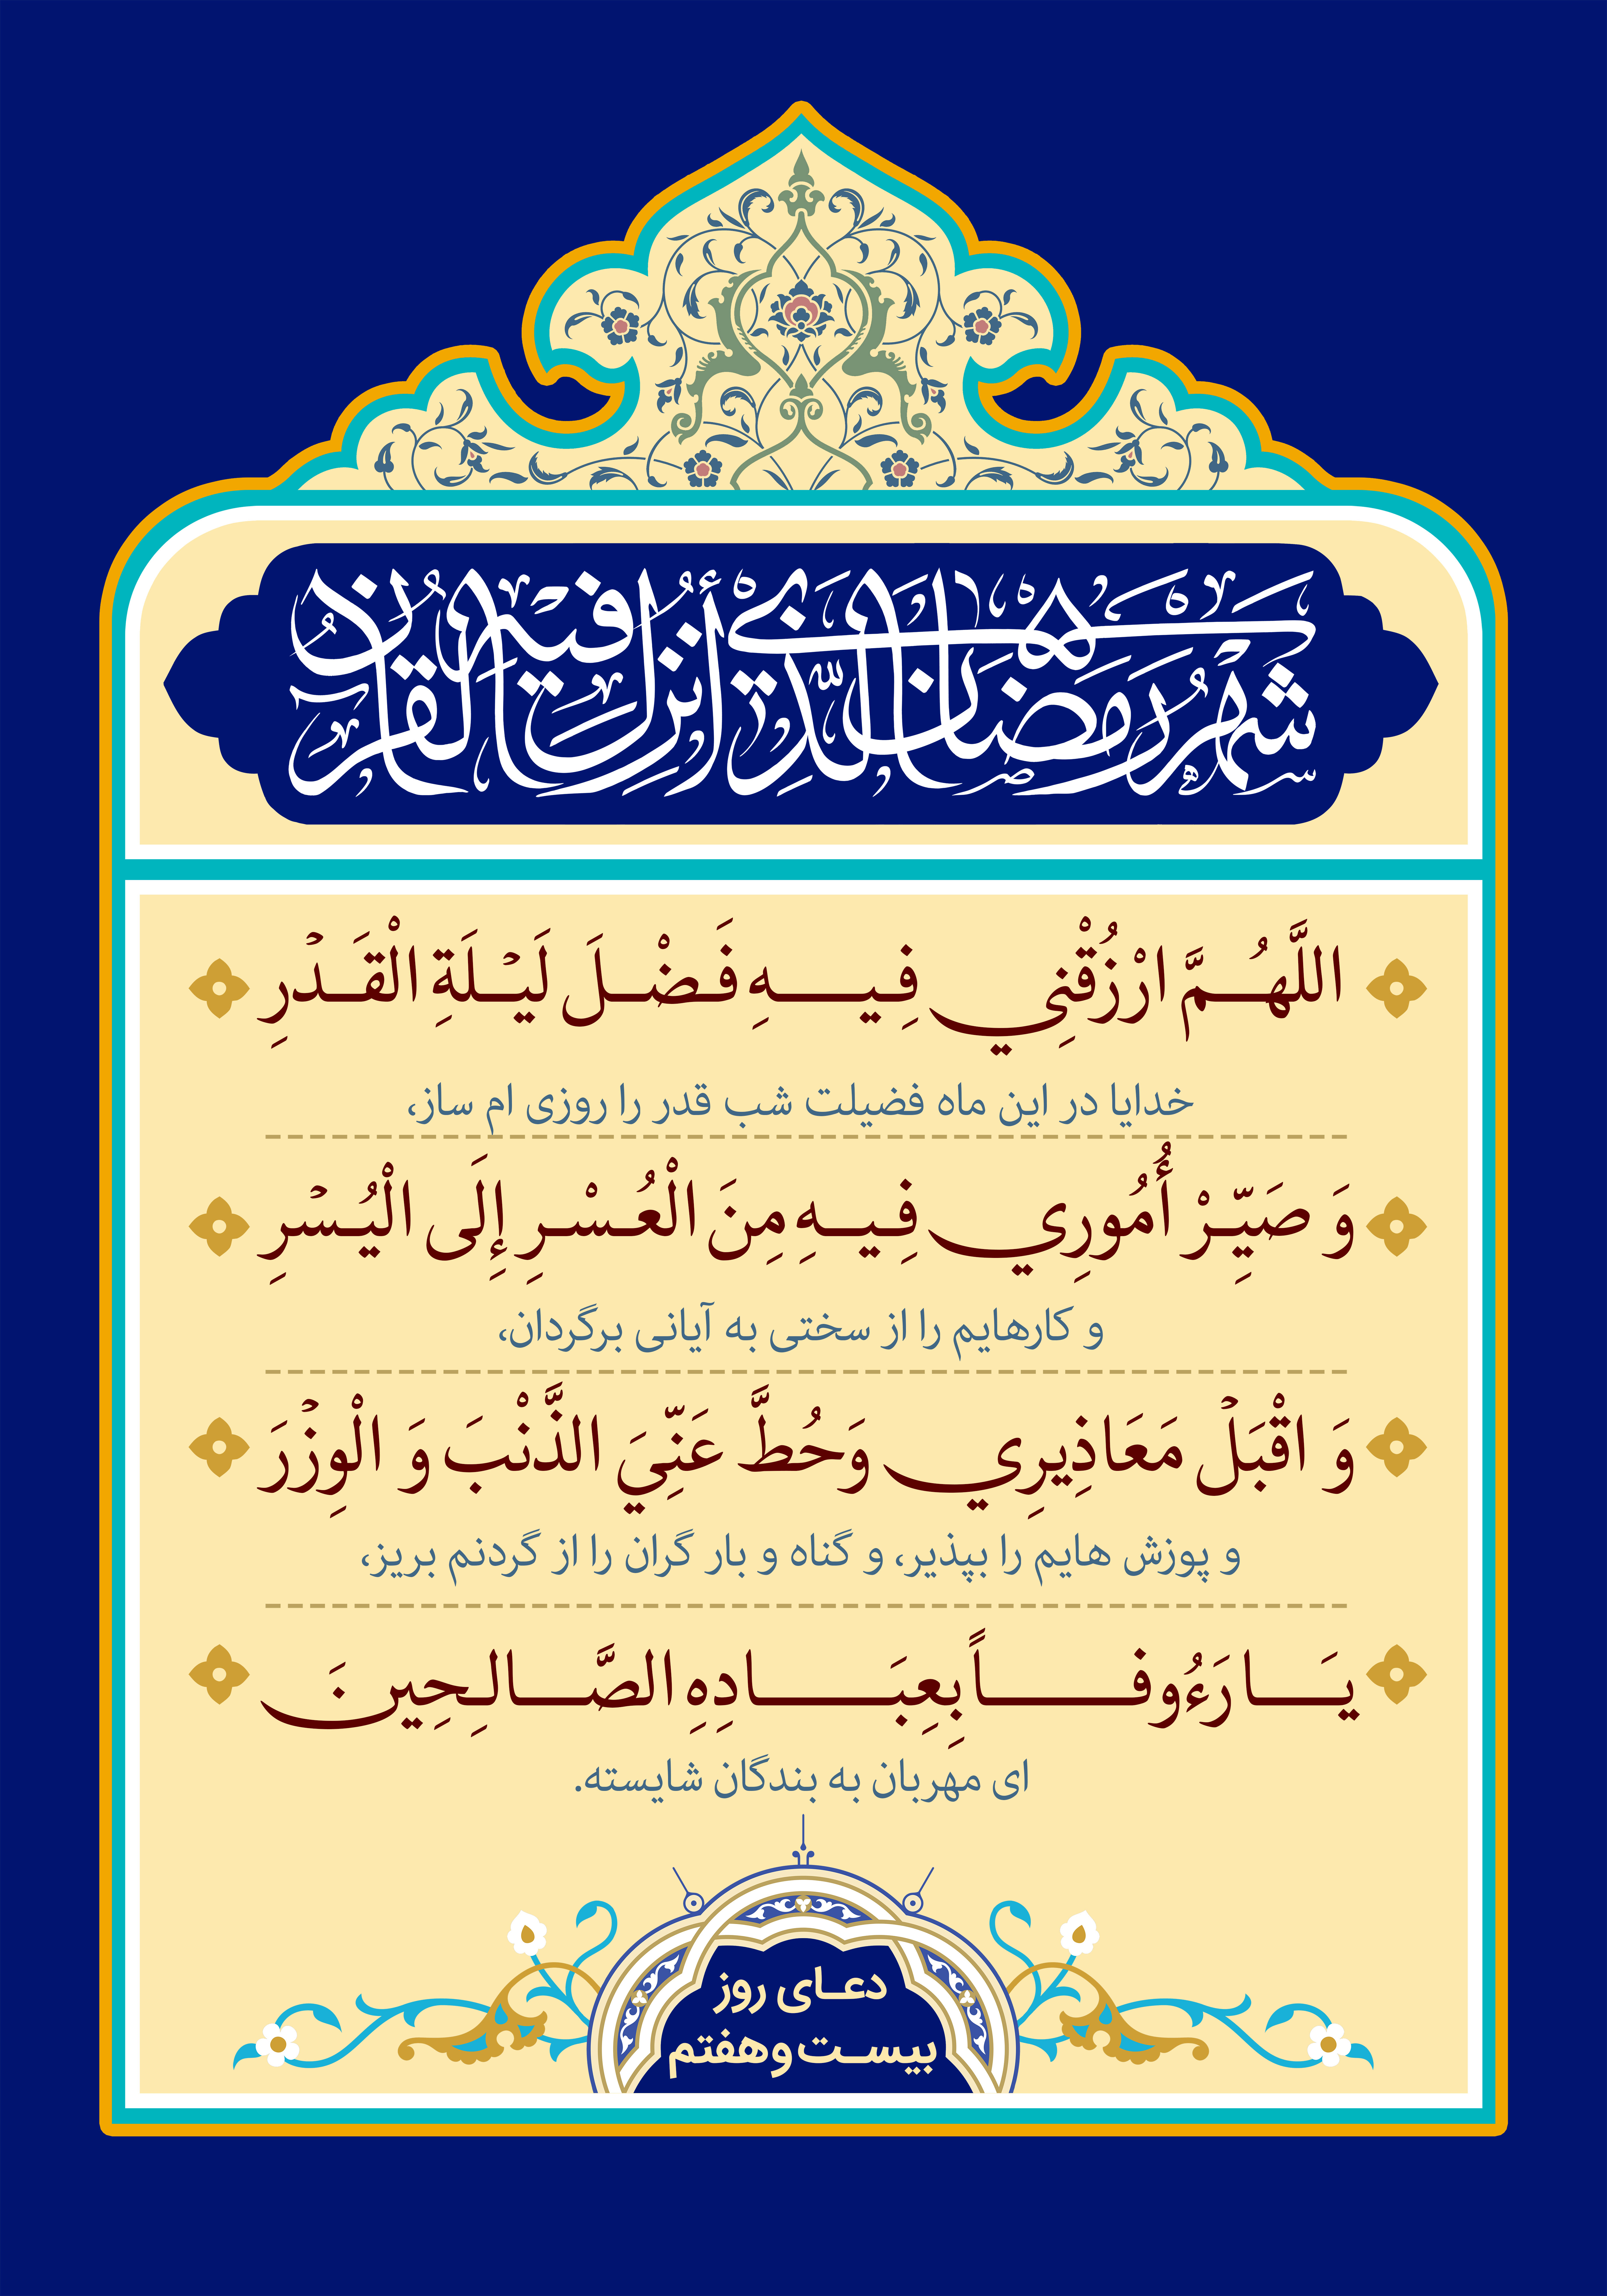 شَهْرُ رَمَضَانَ الَّذِي أُنْزِلَ فِيهِ الْقُرْآنُ
اللَّهُمَّ ارْزُقْنِي فِيهِ فَضْلَ لَيْلَةِ الْقَدْرِ
خدایا در این ماه فضیلت شب قدر را روزی ام ساز،
وَ صَيِّرْ أُمُورِي فِيهِ مِنَ الْعُسْرِ إِلَى الْيُسْرِ
و کارهایم را از سختی به آیانی برگردان،
وَ اقْبَلْ مَعَاذِيرِي وَحُطَّ عَنِّيَ الذَّنْبَ وَ الْوِزْرَ
و پوزش هایم را بپذیر، و گناه و بار گران را از گردنم بریز،
يَا رَءُوفاً بِعِبَادِهِ الصَّالِحِينَ
ای مهربان به بندگان شایسته.
دعای روز
بیست‌وهفتم